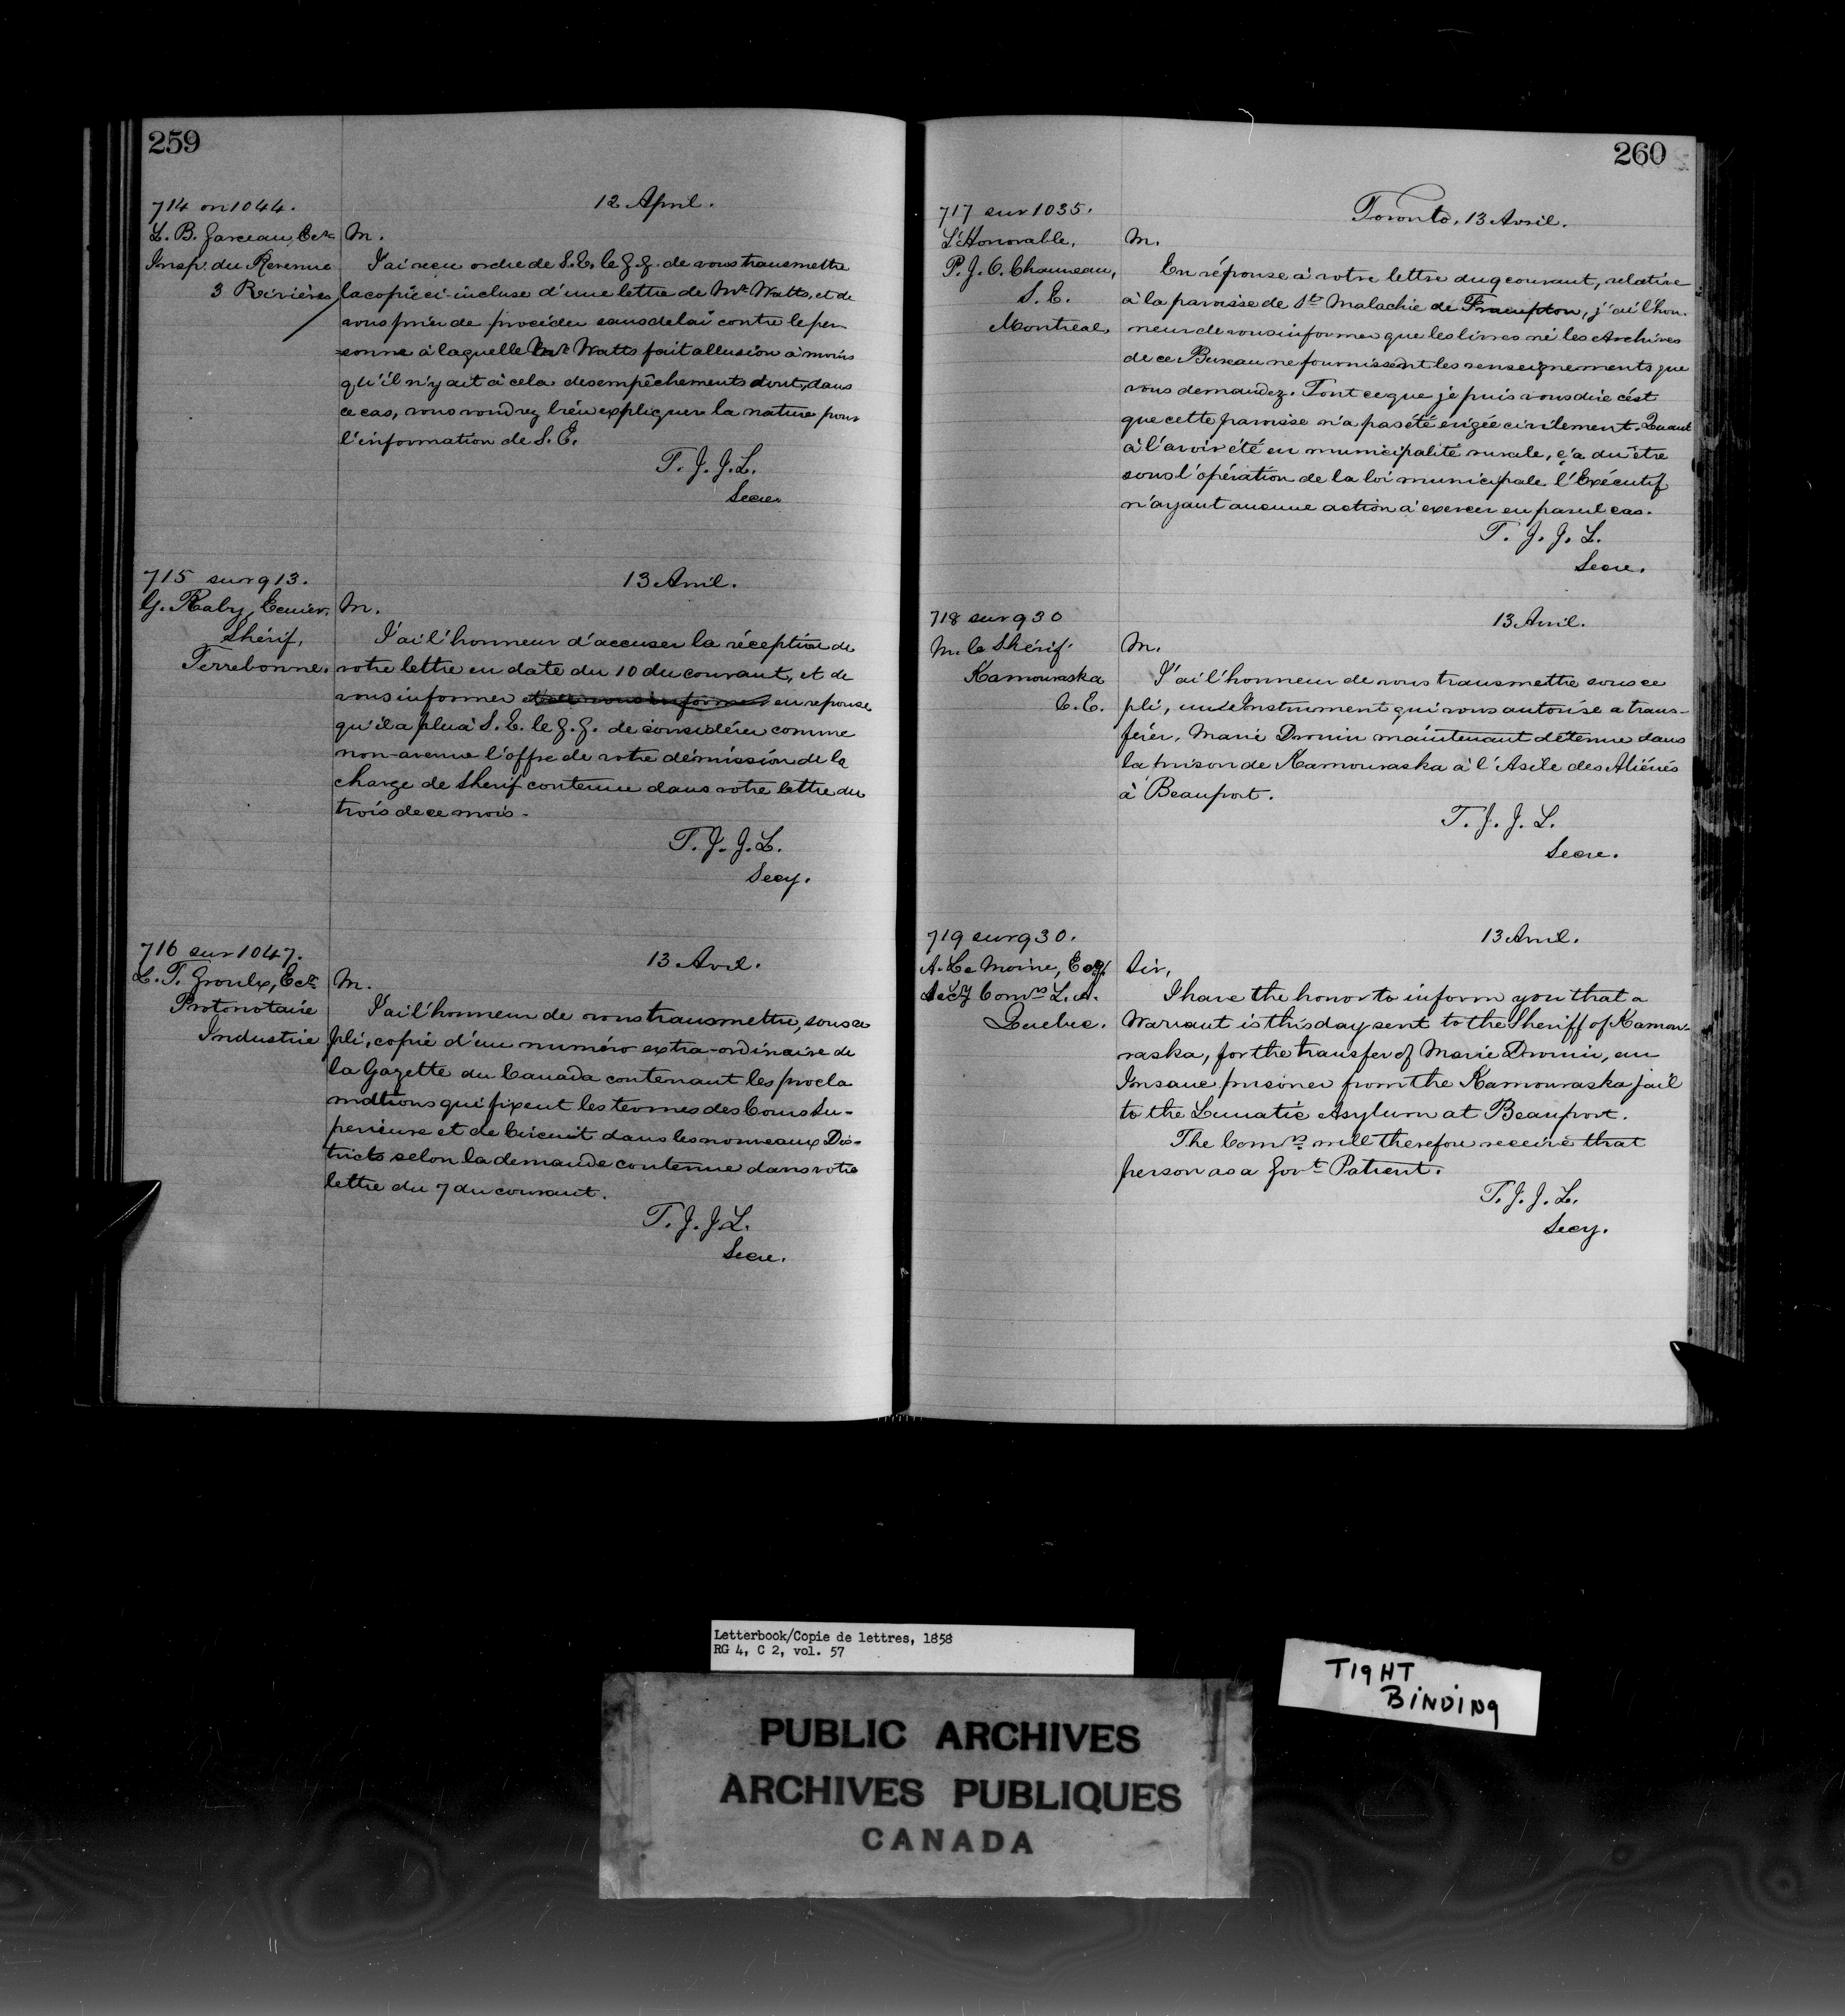 259
12 April.
714 on 1044.
L. B. Garceau, Ecr
Insp. du Revenue
3 Rivières
M.
J'ai reçu ordre de S.E. le G.G. de vous transmettre
la copie ci-incluse d'une lettre de Mr. Watts, et de
vous prier de procéder sans delai contre le per-
-sonne à laquelle Mr. Watts fait allusion à moins
qu'il n'y ait à cela des empêchements dont, dans
ce cas, vous voudrez bien expliquer la nature pour
l'information de S. E.
T. J. J. L.
Secre.
715 sur 913.
13 Avril.
G. Raby, Ecuier,
Shérif,
Terrebonne.
M.
J'ai l'honneur d'accuser la réception de
votre lettre en date du 10 du courant, et de
vous informer et de vous informer en reponse
qu'il a plu à S. E. le G. G. de considérer comme
non-avenue l'offre de votre démission de la
charge de Sherif contenue dans votre lettre du
trois de ce mois.
T. J. J. L.
Secy.
716 sur 1047.
13 Avril.
L. T. Groulx, Ecr
Protonotaire
Industrie
M.
J'ai l'honneur de vous transmettre, sous ce
pli, copie d'un numéro extra-ordinaire de
la Gazette du Canada contenant les procla
mations qui fixent les termes des Cours Su-
perieure et de Circuit dans les nouveaux Dis-
tricts selon la demande contenue dans votre
lettre du 7 du courant.
T. J. J. L.
Secre.
260
717 sur 1035.
Toronto, 13 Avril.
L'Honorable,
P. J. O. Chauveau,
S. E.
Montreal,
M.
En réponse à votre lettre du 9 courant, relative
à la paroisse de St. Malachie de Frampton, j'ai l'hon-
neur de vous informer que les livres ni les Archives
de ce Bureau ne fournissent les renseignements que
vous demandez. Tout ce que je puis vous dire c'est
que cette paroisse n'a pas été érigée civilement. Quant
à l'avoir été en municipalité rurale, ç'a dû être
sous l'opération de la loi municipale, l'Exécutif
n'ayant aucune action à exercer en pareil cas.
T. J. J. L.
Secre.
718 sur 930
13 Avril.
M. le Shérif
Kamouraska
C. E.
M.
J'ai l'honneur de vous transmettre sous ce
pli, un Instrument qui vous autorise a trans-
férer, Marie Drouin maintenant détenue dans
la prison de Kamouraska à l'Asile des Aliénés
à Beauport.
T. J. J. L.
Secre.
719 sur 930.
13 Avril.
A. Le Moine, Esq.
Secy Comrs L. A.
Quebec.
Sir,
I have the honor to inform you that a
Warrant is this day sent to the Sheriff of Kamou-
raska, for the transfer of Marie Drouin, an
Insane prisoner from the Kamouraska jail
to the Lunatic Asylum at Beauport.
The Comrs will therefore receive that
person as a Govt. Patient.
T. J. J. L.
Secy.
Letterbook/Copie de lettres, 1858
RG 4, C 2, vol. 57
TIGHT
BINDING
PUBLIC ARCHIVES
ARCHIVES PUBLIQUES
CANADA